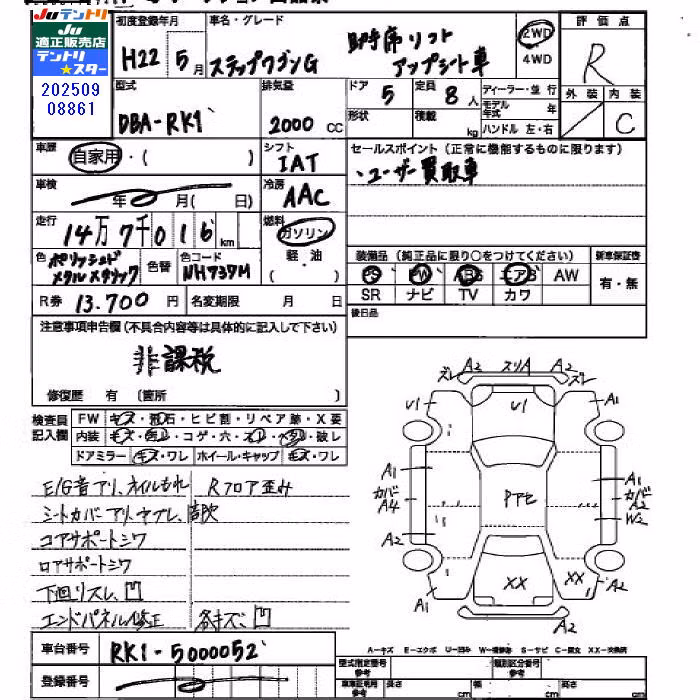 Juテントリ
Ju
適正販売店
テントリ
★スター
202509
08861
初度登録年月
H22 5月
車名・グレード
ステップワゴンG
助手席リフト
アップシート車
2WD
4WD
評価点
R
外装 内装
C
型式
DBA-RK1
排気量
2000 CC
ドア 5
形状
定員 8人
積載 kg
ディーラー・並行
モデル年式 年
ハンドル 左・右
車歴
自家用・( )
シフト
IAT
セールスポイント(正常に機能するものに限ります)
・ユーザー買取車
車検
年 月( 日)
冷房
AAC
走行
14万7千016km
燃料
ガソリン
軽・油
( )
色
ポリッシュド
メタルメタリック
色替
色コード
NH737M
装備品(純正品に限り○をつけてください)
PS PW ABS エアB AW
SR ナビ TV カワ
新車保証書
有・無
R券 13.700円
名変期限 月 日
後日品
注意事項申告欄(不具合内容等は具体的に記入して下さい)
非課税
修復歴 有 〔箇所 〕
検査員
記入欄
FW キズ・飛石・ヒビ割・リペア跡・X要
内装
ドアミラー キズ・ワレ ホイール・キャップ キズ・ワレ
E/G音アリ、オイルもれ
Rフロア歪み
シートカバーアリ
コアサポートシワ
ロアサポートシワ
下回りスレ、凹
エンドパネル修正
各キズ、凹
A2 スリA A2
ズレ ズレ
U1 U1 A1
A1 A1
カバー カバー
A4 A2
W2
Pアセ
A2
XX XX
A1 A2
A2
車台番号
RK1-5000052
登録番号
A-キズ E-エクボ U-凹み W-補修跡 S-サビ C-腐食 XX-交換済
型式指定番号
参考
類別区分番号
参考
車車証明用
参考
長さ cm
幅 cm
高さ cm